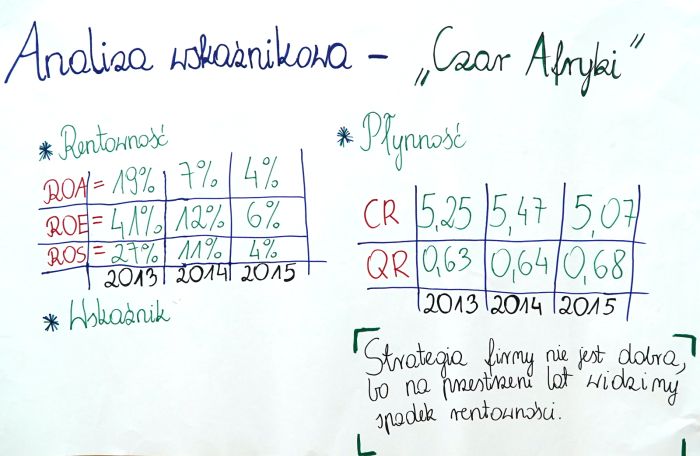 Analiza wskaźnikowa – „Czar Afryki"
* Rentowność
ROA = 19% 7% 4%
ROE = 41% 12% 6%
ROS = 27% 11% 4%
2013 2014 2015
* Wskaźnik
* Płynność
CR 5,25 5,47 5,07
QR 0,63 0,64 0,68
2013 2014 2015
Strategia firmy nie jest dobra,
bo na przestrzeni lat widzimy
spadek rentowności.